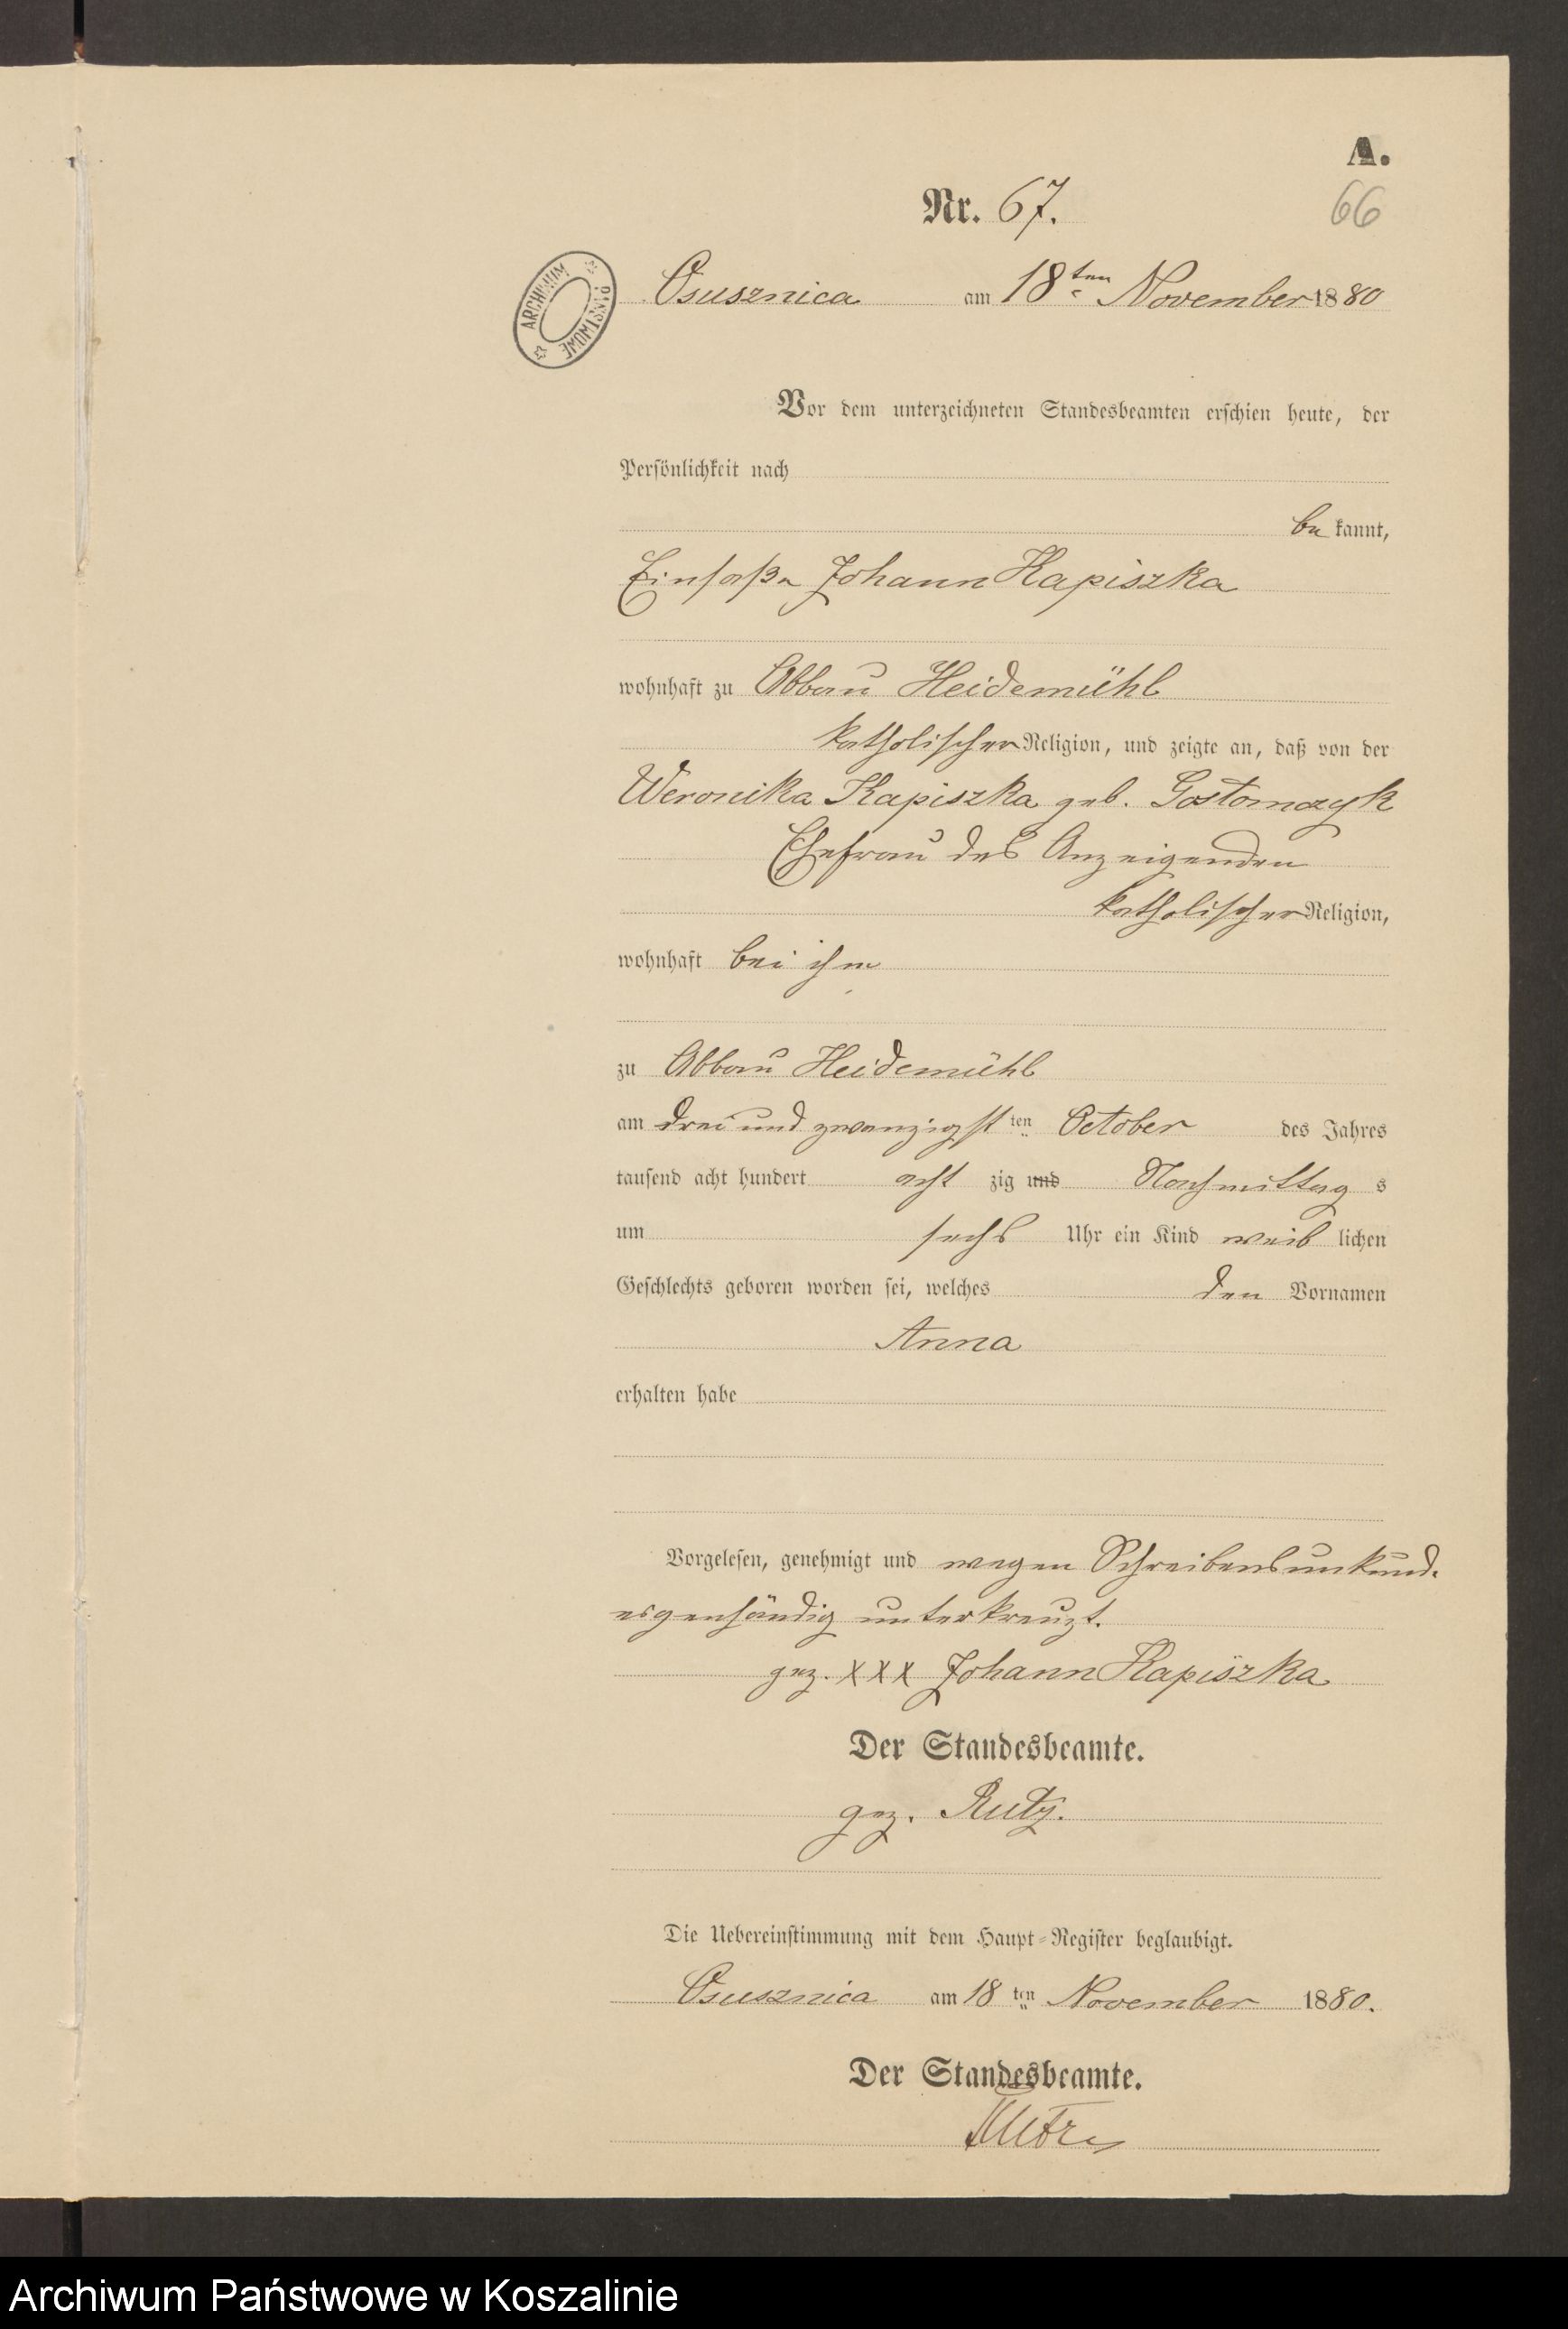 A.
Nr. 67.
66
ARCHIWUM PAŃSTWOWE
Osusznica am 18ten November 1880
Vor dem unterzeichneten Standesbeamten erschien heute, der
Persönlichkeit nach
be kannt,
Einsaße Johann Kapiszka
wohnhaft zu Abbau Heidemühl
katholischer Religion, und zeigte an, daß von der
Weronika Kapiszka geb. Gostomczyk
Ehefrau des Anzeigenden
katholischer Religion,
wohnhaft bei ihm
zu Abbau Heidemühl
am drei und zwanzigst ten October des Jahres
tausend acht hundert acht zig und Nachmittag s
um sechs Uhr ein Kind weib lichen
Geschlechts geboren worden sei, welches den Vornamen
Anna
erhalten habe
Vorgelesen, genehmigt und wegen Schreibensunkund.
eigenhändig unterkreuzt.
gez. XXX Johann Kapiszka
Der Standesbeamte.
gez. Rutz.
Die Uebereinstimmung mit dem Haupt-Register beglaubigt.
Osusznica am 18 ten November 1880.
Der Standesbeamte.
Rutz
Archiwum Państwowe w Koszalinie